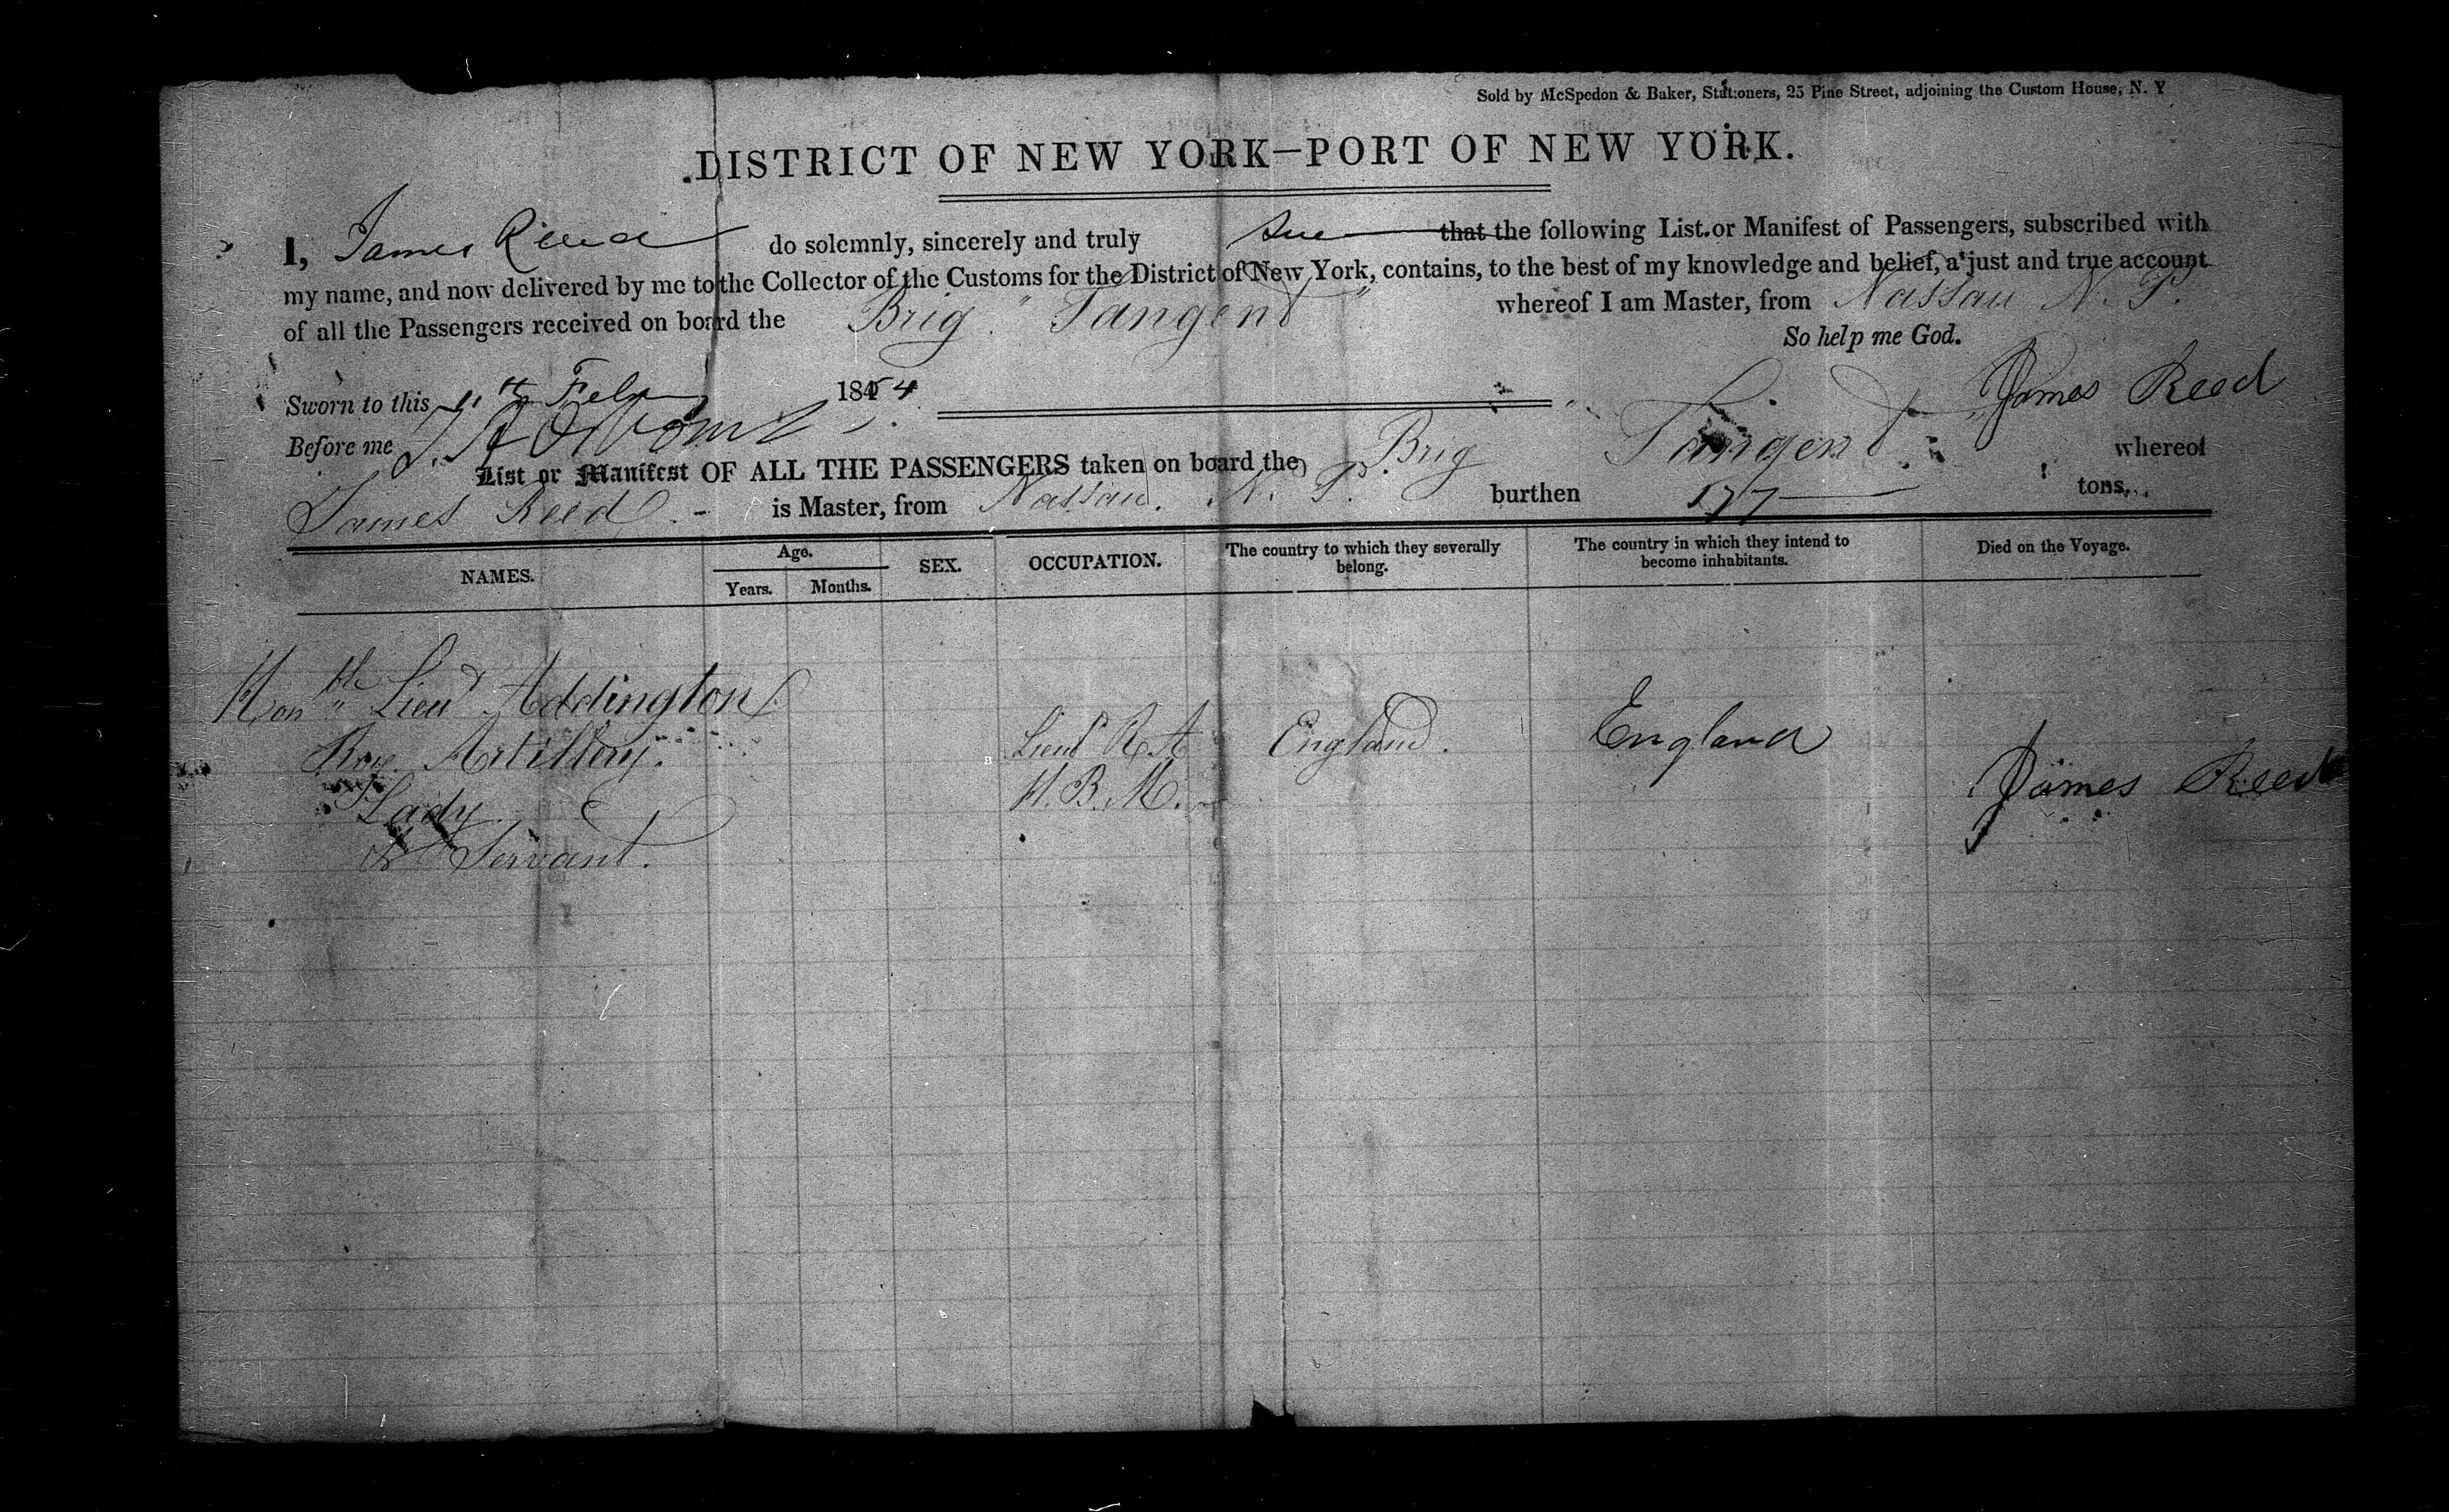 Sold by McSpedon & Baker, Stationers, 25 Pine Street, adjoining the Custom House, N. Y
DISTRICT OF NEW YORK—PORT OF NEW YORK.
I, James Reed do solemnly, sincerely and truly that the following List or Manifest of Passengers, subscribed with
my name, and now delivered by me to the Collector of the Customs for the District of New York, contains, to the best of my knowledge and belief, a just and true account
of all the Passengers received on board the Brig "Tangent" whereof I am Master, from Nassau N. P.
So help me God.
Sworn to this 11th Feby 1854 James Reed
Before me
List or Manifest OF ALL THE PASSENGERS taken on board the Brig Tangent whereof
James Reed is Master, from Nassau. N. P. burthen 177 tons.
NAMES. Age. Years. Months. SEX. OCCUPATION. The country to which they severally belong. The country in which they intend to become inhabitants. Died on the Voyage.
Honble Lieut Addington
Roy. Artillery. Lieut R.A England. England
Lady H.B.M. James Reed
& Servant.